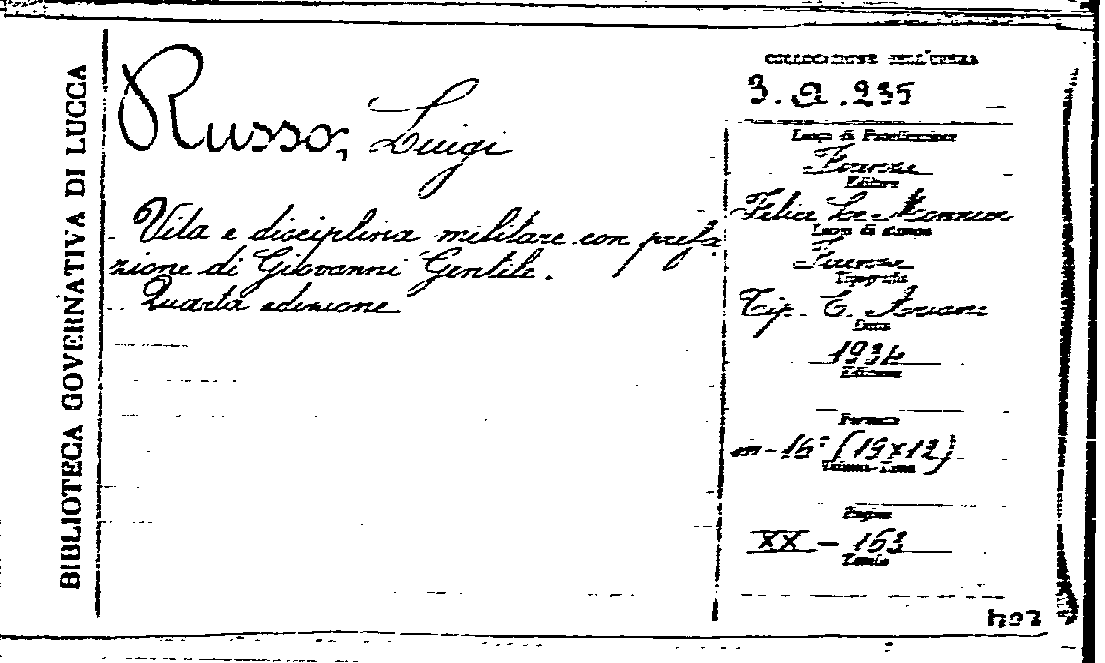 BIBLIOTECA GOVERNATIVA DI LUCCA
Russo, Luigi
Vita e disciplina militare con prefa
zione di Giovanni Gentile.
Quarta edizione
COLLOCAZIONE DELL'OPERA
3. a. 235
Luogo di Pubblicazione
Firenze
Editore
Felice Le Monnier
Luogo di stampa
Firenze
Tipografia
Tip. E. Ariani
Data
1934
Edizione
Formato
in-16° (19x12)
Volumi-Tomi
Pagine
XX - 163
Tavole